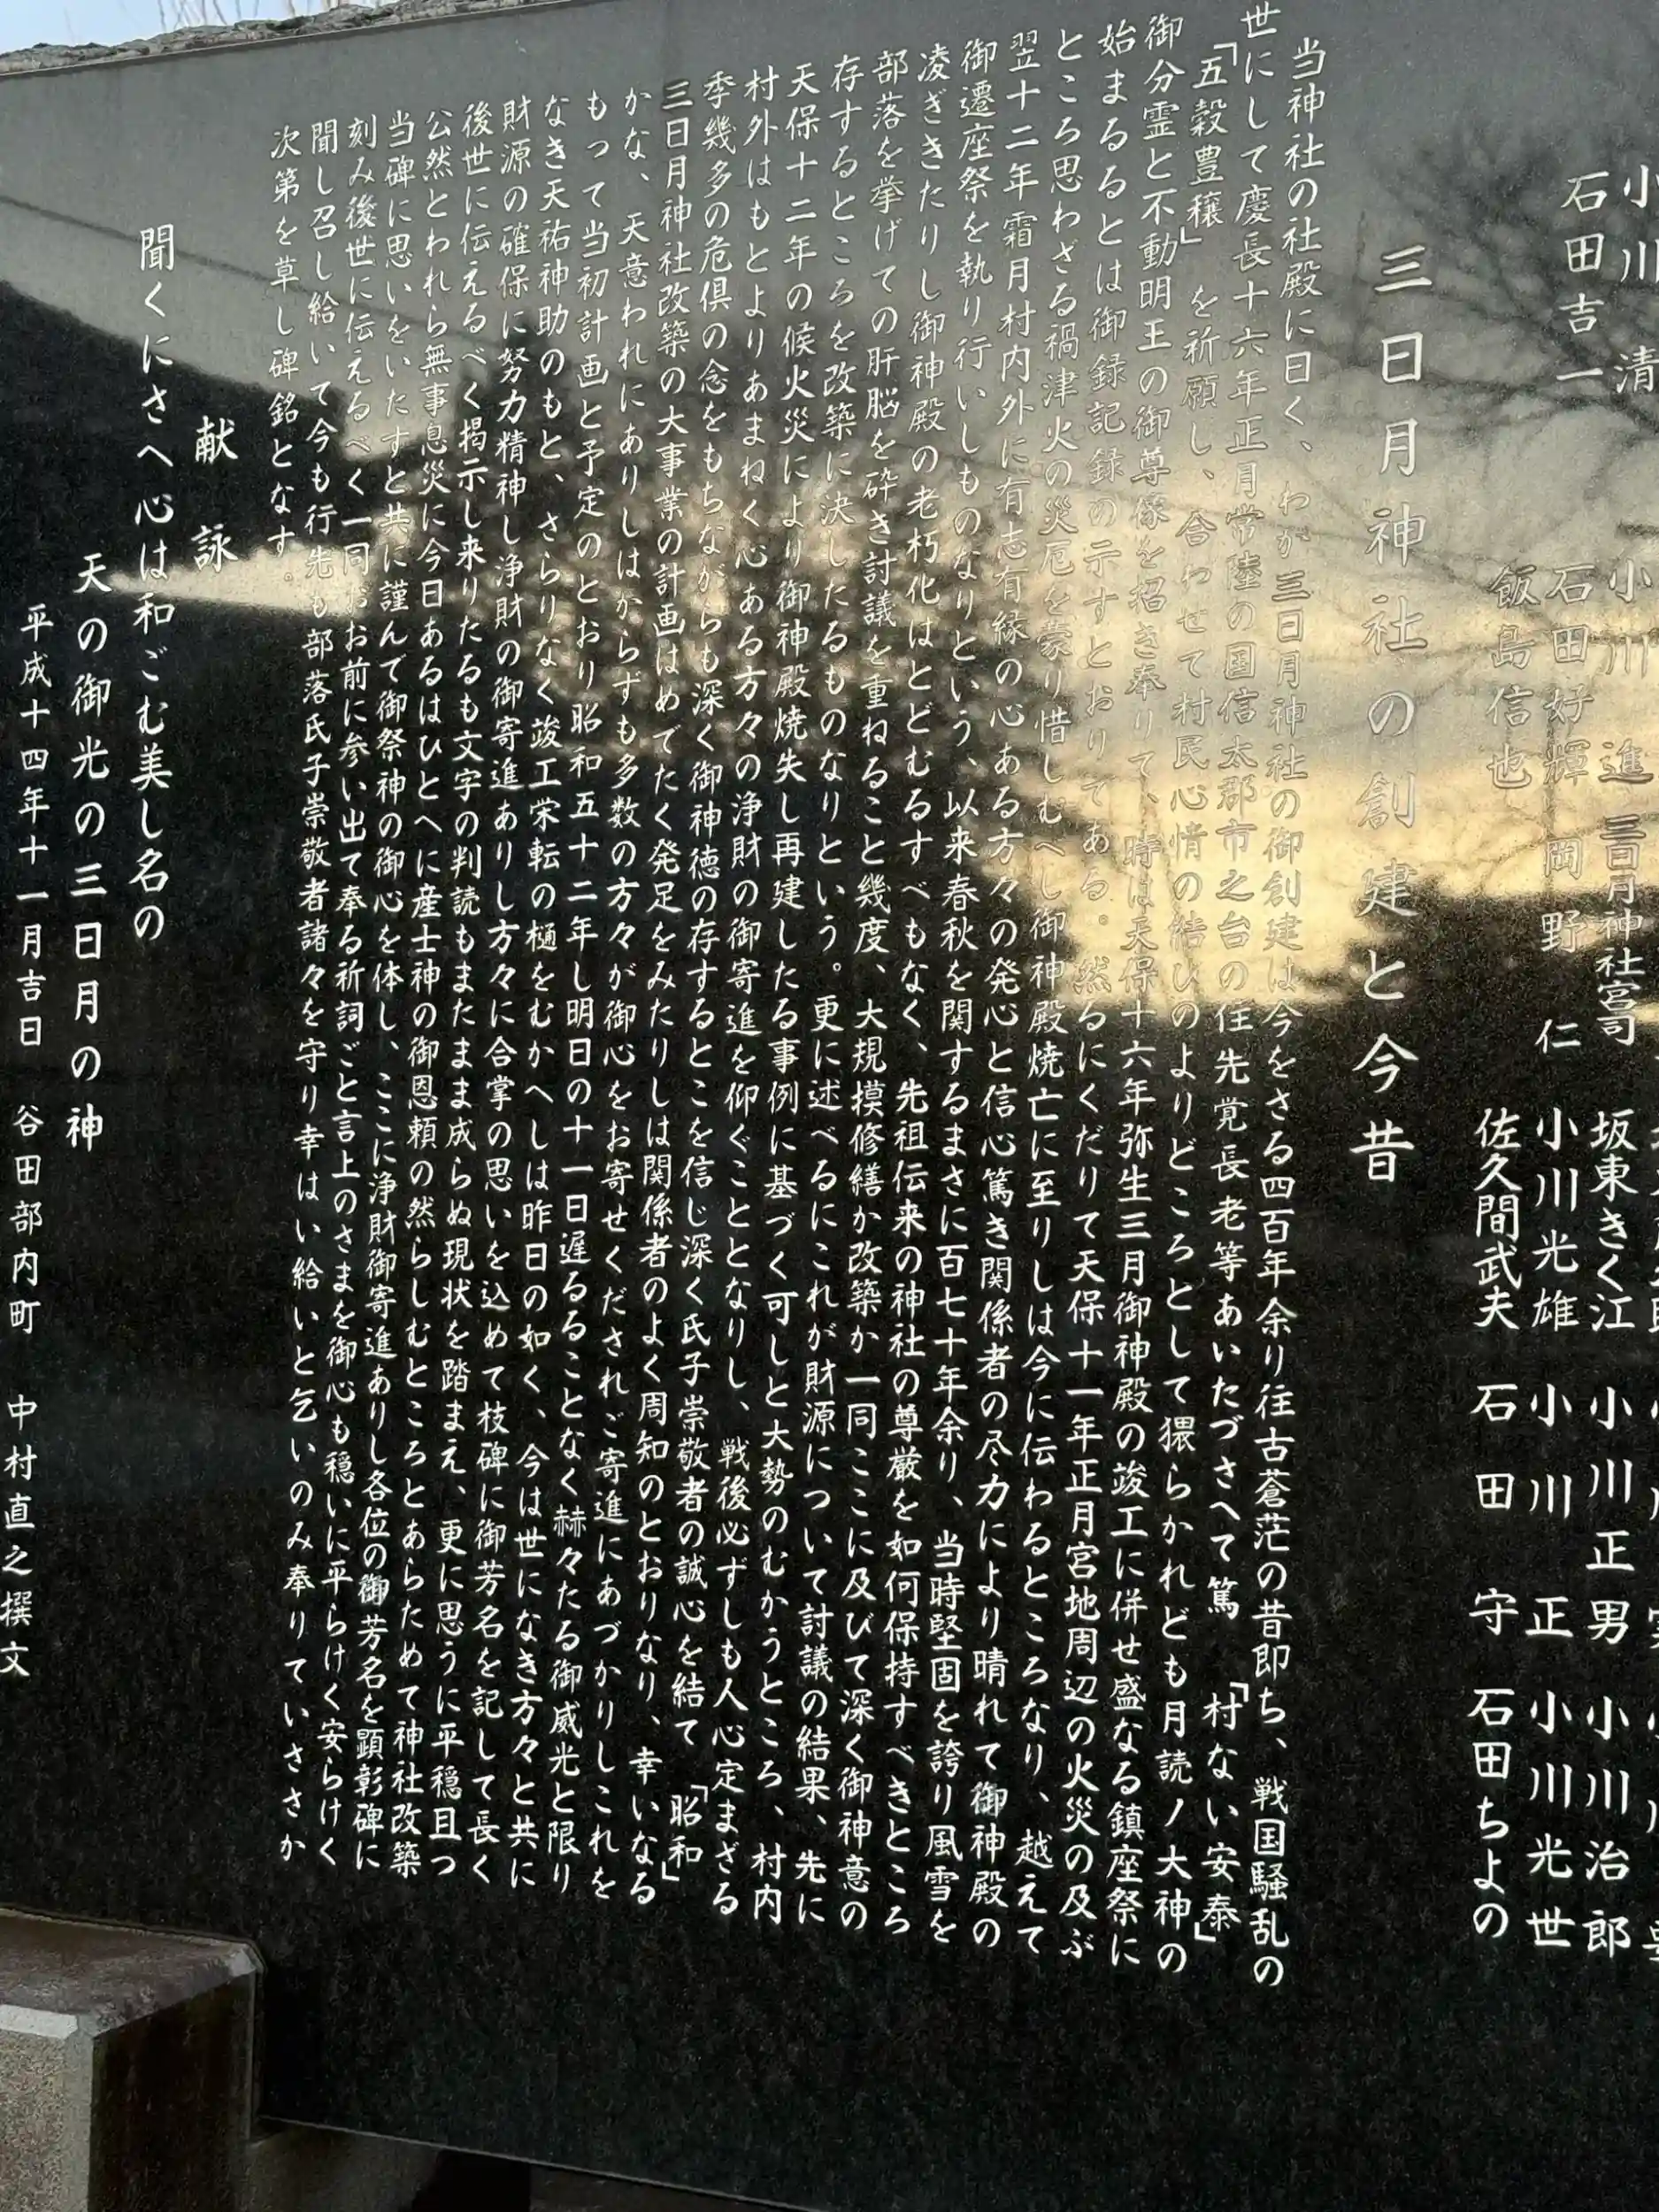 小川 清
石田吉一
小川 進 三日月神社宮司 坂東きく江 小川正男 小川治郎
石田好輝 岡野 仁 小川光雄 小川 正 小川光世
飯島信也 佐久間武夫 石田 守 石田ちよの
三日月神社の創建と今昔
当神社の社殿に曰く、わが三日月神社の御創建は今をさる四百年余り往古蒼茫の昔即ち、戦国騒乱の
世にして慶長十六年正月常陸の国信太郡市之台の住先覚長老等あいたづさへて篤実「村ない安泰」
「五穀豊穣」を祈願し、合わせて村民心情の結びのよりどころとして猥らかれども月読ノ大神の
御分霊と不動明王の御尊像を招き奉りて、時は天保十六年弥生三月御神殿の竣工に併せ盛なる鎮座祭に
始まるるとは御録記録の示すとおりてある。然るにくだりて天保十一年正月宮地周辺の火災の及ぶ
ところ思わざる禍津火の災厄を蒙り惜しむべし御神殿焼亡に至りしは今に伝わるところなり、越えて
翌十二年霜月村内外に有志有縁の心ある方々の発心と信心篤き関係者の尽力により晴れて御神殿の
御遷座祭を執り行いしものなりという、以来春秋を関するまさに百七十年余り、当時堅固を誇り風雪を
凌ぎきたりし御神殿の老朽化はとどむるすべもなく、先祖伝来の神社の尊厳を如何保持すべきところ
部落を挙げての肝脳を砕き討議を重ねること幾度、大規模修繕か改築か一同ここに及びて深く御神意の
存するところを改築に決したるものなりという。更に述べるにこれが財源について討議の結果、先に
天保十二年の候火災により御神殿焼失し再建したる事例に基づく可しと大勢のむかうところ、村内
村外はもとよりあまねく心ある方々の浄財の御寄進を仰ぐこととなりし、戦後必ずしも人心定まざる
季幾多の危倶の念をもちながらも深く御神徳の存するとこを信じ深く氏子崇敬者の誠心を結て「昭和」
三日月神社改築の大事業の計画はめでたく発足をみたりしは関係者のよく周知のとおりなり、幸いなる
かな、天意われにありしはからずも多数の方々が御心をお寄せくだされご寄進にあづかりしこれを
もって当初計画と予定のとおり昭和五十二年し明日の十一日遅るることなく赫々たる御威光と限り
なき天祐神助のもと、さらりなく竣工栄転の樋をむかへしは昨日の如く、今は世になき方々と共に
財源の確保に努力精神し浄財の御寄進ありし方々に合掌の思いを込めて枝碑に御芳名を記して長く
後世に伝えるべく掲示し来りたるも文字の判読もまたまま成らぬ現状を踏まえ、更に思うに平穏且つ
公然とわれら無事息災に今日あるはひとへに産土神の御恩頼の然らしむところとあらためて神社改築
当碑に思いをいたすと共に謹んで御祭神の御心を体し、ここに浄財御寄進ありし各位の御芳名を顕彰碑に
刻み後世に伝えるべく一同お前に参い出て奉る祈詞ごと言上のさまを御心も穏いに平らけく安らけく
聞し召し給いて今も行先も部落氏子崇敬者諸々を守り幸はい給いと乞いのみ奉りていささか
次第を草し碑銘となす。
献詠
聞くにさへ心は和ごむ美し名の
天の御光の三日月の神
平成十四年十一月吉日 谷田部内町 中村直之撰文